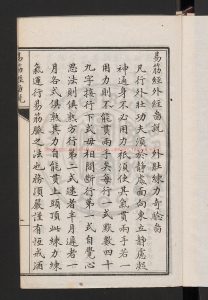 易筋經外經圖說　外壯練力奇驗圖
凡行外壯功夫須於靜處面向東立靜慮凝
神通身不必用力祇須使其氣貫兩手若一
用力則不能貫兩手矣每行一式默數四十
九字接行下式毋相間斷行第一式自覺心
思法則俱熟方行第二式速者半月遲者一
月各式俱熟其力自能貫上頭頂此練力練
氣運行易筋脈之法也務須嚴謹有恒戒酒
易筋經圖說